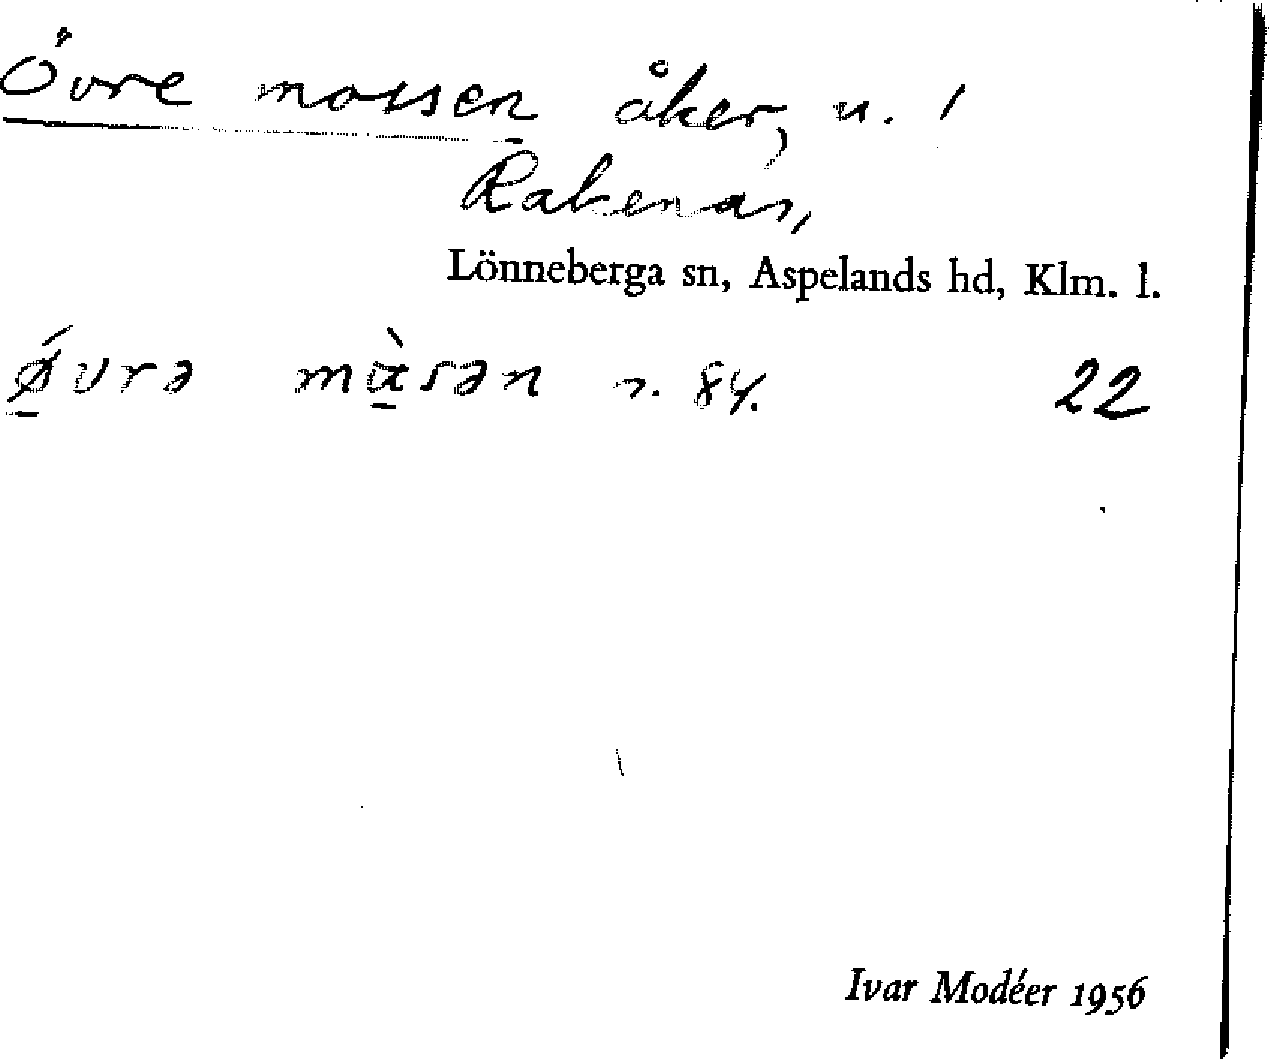 Övre mossen åker, u. 1
Rakenäs,
Lönneberga sn, Aspelands hd, Klm. l.
ǿvrə mɑ̀sən r. 84. 22
Ivar Modéer 1956